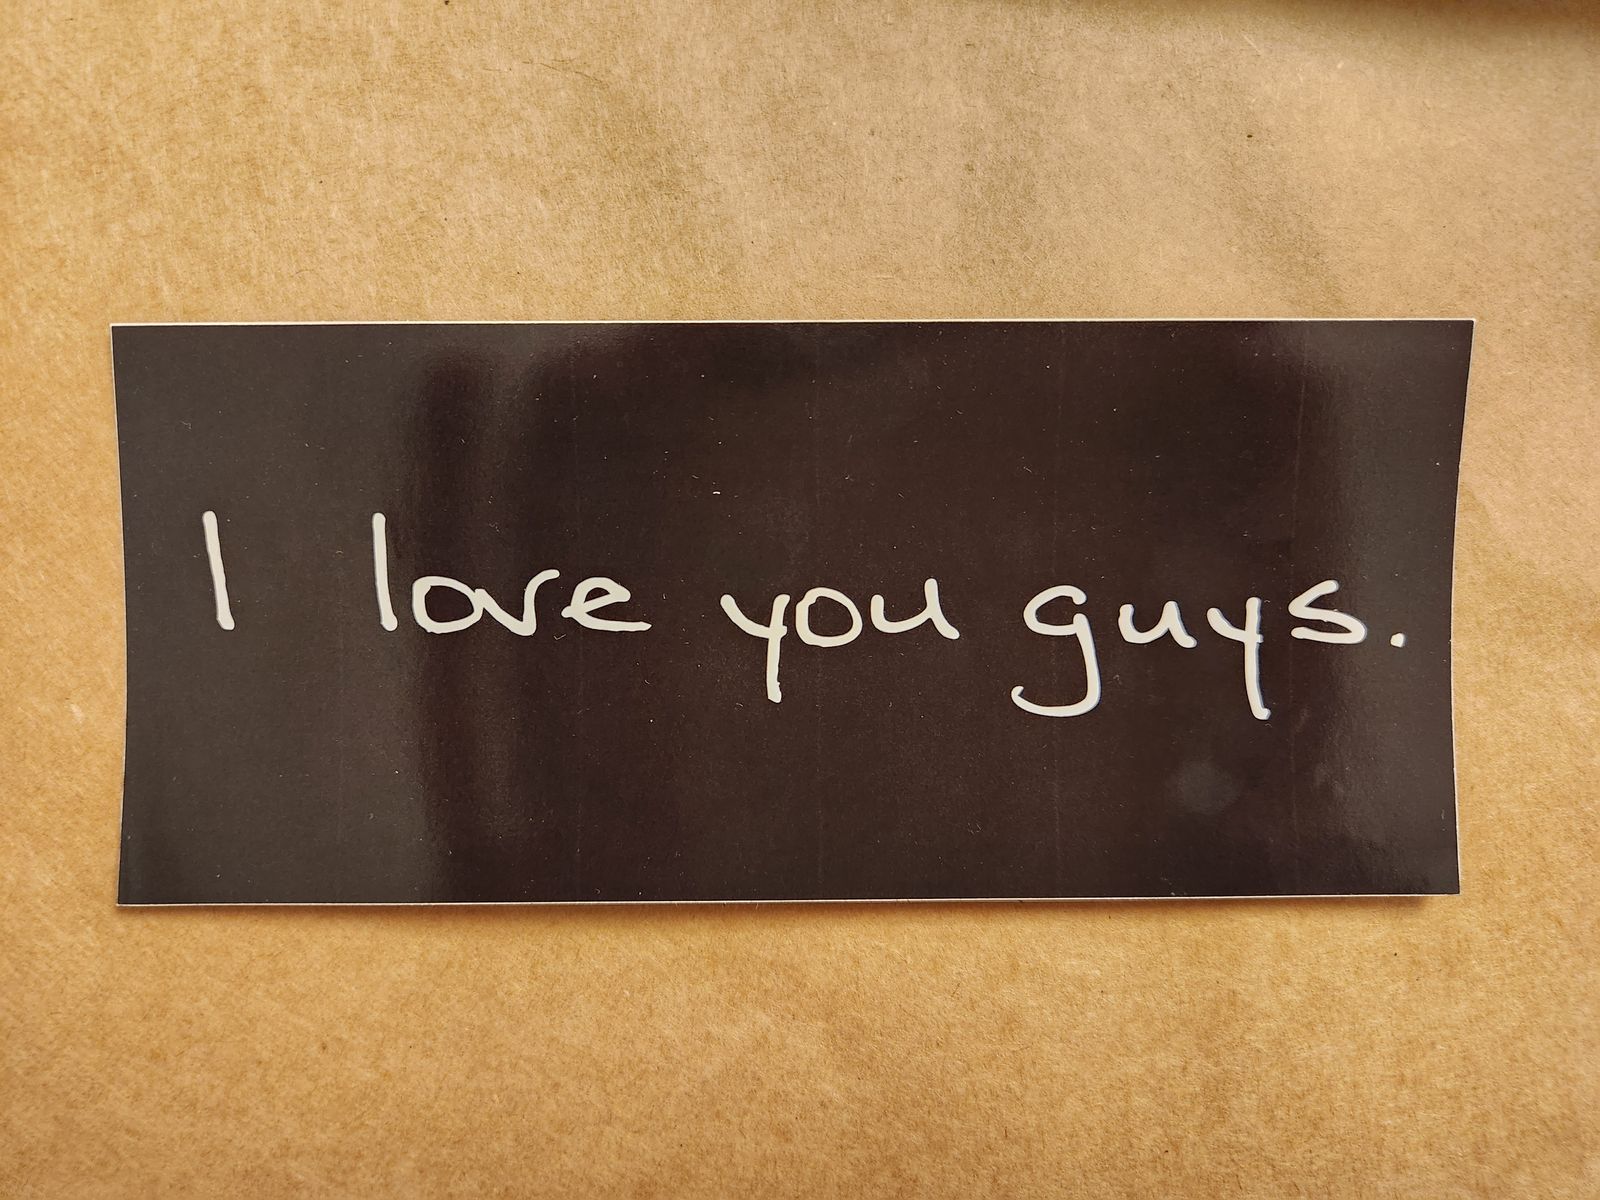 I love you guys.